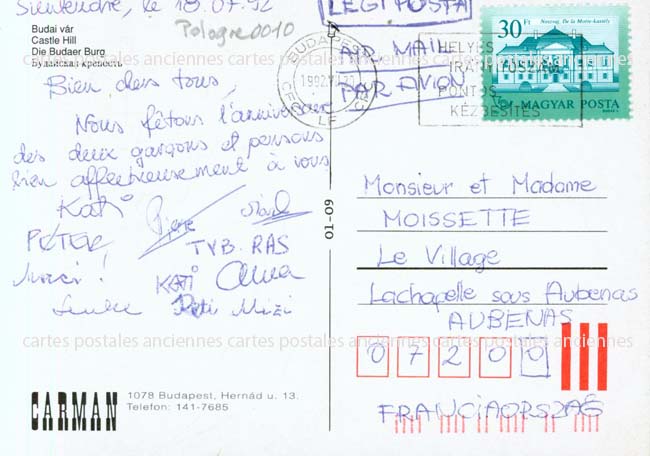 Szentendre, le 18.07.92
Pologne 0010
LÉGI POSTA
AIR MAIL
PAR AVION
Budai vár
Castle Hill
Die Budaer Burg
Будайская крепость
30 Ft
Noszvaj, De la Motte-kastély
MAGYAR POSTA
BUDAPEST
1992.7.
HELYES
IRÁNYÍTÓSZÁM
PONTOS
KÉZBESÍTÉS
Bien chers tous,
Nous fêtons l'anniversaire
des deux garçons et pensons
bien affectueusement à vous
Kati
PETER
TYB. RAS
KATI Anna
Mizi
01-09
Monsieur et Madame
MOISSETTE
Le Village
Lachapelle sous Aubenas
AUBENAS
07200
FRANCIAORSZÁG
cartes postales anciennes cartes postales anciennes cartes postales anciennes
CARMAN
1078 Budapest, Hernád u. 13.
Telefon: 141-7685